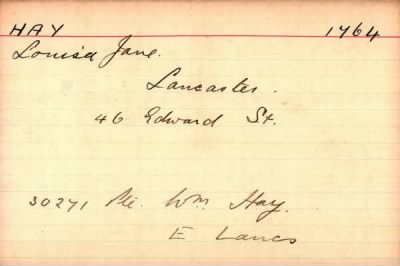 HAY 1764
Louisa Jane.
Lancaster.
46 Edward St.
30271 Pte. Wm. Hay.
E Lancs